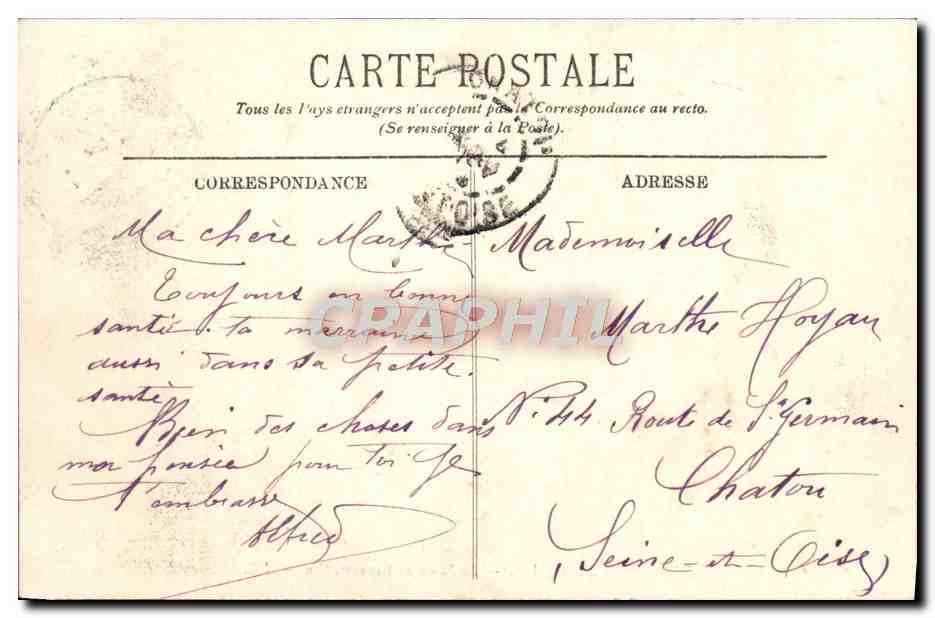 CARTE POSTALE
Tous les Pays etrangers n'acceptent pas la Correspondance au recto.
(Se renseigner à la Poste).
CORRESPONDANCE
ADRESSE
OISE
Ma chère Marthe
Toujours en bonne
santé. ta marraine
aussi dans sa petite
santé
Bien des choses dans
ma pensée pour toi je
t'embrasse
Alfred
Mademoiselle
Marthe Hoyau
N° 44 Route de St Germain
Chatou
(Seine-et-Oise)
CRAPHIL